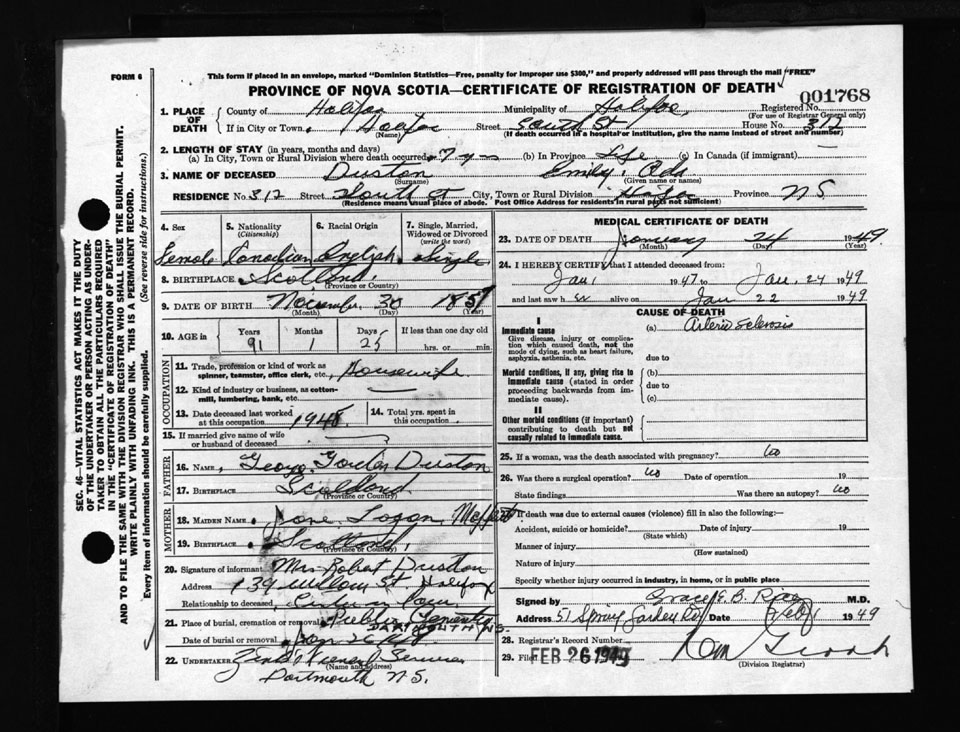 FORM 6
This form if placed in an envelope, marked "Dominion Statistics—Free, penalty for improper use $300," and properly addressed will pass through the mail "FREE"
PROVINCE OF NOVA SCOTIA—CERTIFICATE OF REGISTRATION OF DEATH
001768
1. PLACE OF DEATH
County of Halifax Municipality of Halifax Registered No.
(For use of Registrar General only)
If in City or Town, Halifax Street South St House No. 312
(Name) (If death occurred in a hospital or institution, give the name instead of street and number)
2. LENGTH OF STAY (in years, months and days)
(a) In City, Town or Rural Division where death occurred 7 yrs (b) In Province Life (c) In Canada (if immigrant) —
3. NAME OF DECEASED Duston Emily Ada
(Surname) (Given name or names)
RESIDENCE No. 312 Street South St City, Town or Rural Division Province N S
(Residence means usual place of abode. Post Office Address for residents in rural parts not sufficient)
4. Sex Female
5. Nationality (Citizenship) Canadian
6. Racial Origin English
7. Single, Married, Widowed or Divorced (write the word) Single
8. BIRTHPLACE Scotland
(Province or Country)
9. DATE OF BIRTH November 30 1857
(Month) (Day) (Year)
10. AGE in Years 91 Months 1 Days 25 If less than one day old
hrs. or min.
OCCUPATION
11. Trade, profession or kind of work as spinner, teamster, office clerk, etc. Housewife
12. Kind of industry or business, as cotton-mill, lumbering, bank, etc. —
13. Date deceased last worked at this occupation 1948
14. Total yrs. spent in this occupation
15. If married give name of wife or husband of deceased
FATHER
16. NAME, George Gordon Duston
17. BIRTHPLACE Scotland
(Province or Country)
MOTHER
18. MAIDEN NAME Jane Logan Moffatt
19. BIRTHPLACE Scotland
(Province or Country)
20. Signature of informant Mrs Robert Duston
Address 139 Willow St Halifax
Relationship to deceased,
21. Place of burial, cremation or removal Public Cemetery
DARTMOUTH N.S.
Date of burial or removal Jan 26
22. UNDERTAKER Funeral Service
(Name and address)
Dartmouth N.S.
MEDICAL CERTIFICATE OF DEATH
23. DATE OF DEATH January 24 1949
(Month) (Day) (Year)
24. I HEREBY CERTIFY that I attended deceased from:
Jan 1 1947 to Jan. 24 1949
and last saw her alive on Jan 22 1949
CAUSE OF DEATH
I
Immediate cause
Give disease, injury or complication which caused death, not the mode of dying, such as heart failure, asphyxia, asthenia, etc.
(a) Arterio sclerosis
due to
Morbid conditions, if any, giving rise to immediate cause (stated in order proceeding backwards from immediate cause).
(b)
due to
(c)
II
Other morbid conditions (if important) contributing to death but not causally related to immediate cause.
25. If a woman, was the death associated with pregnancy? No
26. Was there a surgical operation? No Date of operation 19
State findings Was there an autopsy? No
27. If death was due to external causes (violence) fill in also the following:—
Accident, suicide or homicide? Date of injury 19
(State which)
Manner of injury
(How sustained)
Nature of injury
Specify whether injury occurred in industry, in home, or in public place
Signed by Grace E. B. Rice M.D.
Address 51 Spring Garden Rd Date Feb 1 1949
28. Registrar's Record Number
29. Filed FEB 26 1949
(Division Registrar)
SEC. 46—VITAL STATISTICS ACT MAKES IT THE DUTY
OF THE UNDERTAKER OR PERSON ACTING AS UNDERTAKER TO OBTAIN ALL THE PARTICULARS REQUIRED
IN THE "CERTIFICATE OF REGISTRATION OF DEATH"
AND TO FILE THE SAME WITH THE DIVISION REGISTRAR WHO SHALL ISSUE THE BURIAL PERMIT.
WRITE PLAINLY WITH UNFADING INK. THIS IS A PERMANENT RECORD.
Every item of information should be carefully supplied. (See reverse side for instructions.)